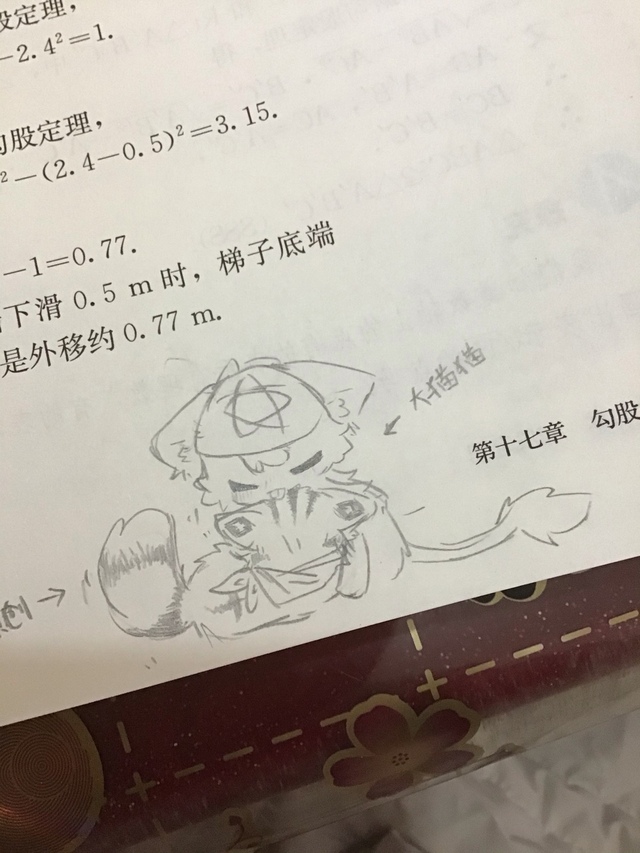 股定理，
-2.4²=1.
勾股定理，
²-(2.4-0.5)²=3.15.
-1=0.77.
下滑 0.5 m 时，梯子底端
是外移约 0.77 m.
大猫猫
第十七章 勾股
创